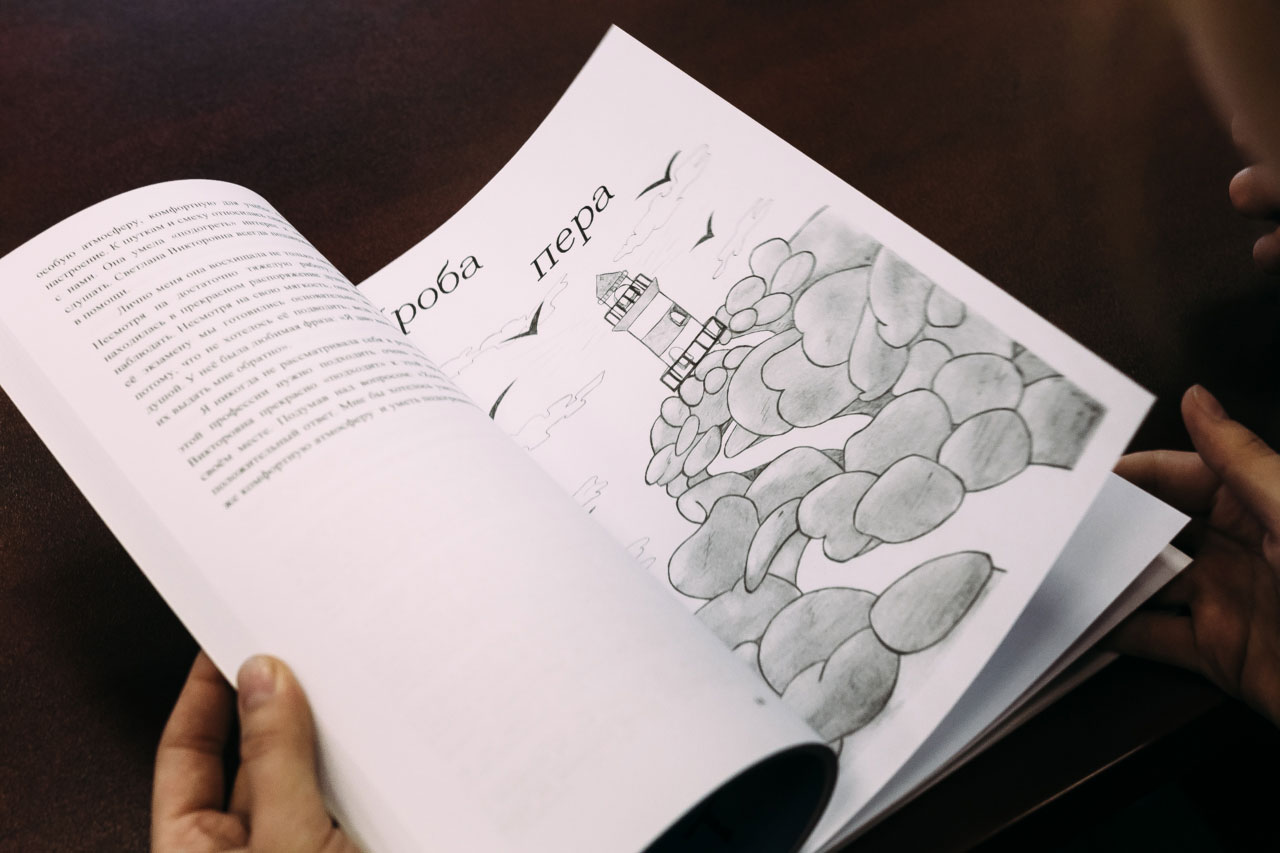 особую атмосферу, комфортную для
настроение. К шуткам и смеху относилась
с нами. Она умела «подогреть» интерес
слушать. Светлана Викторовна всегда
в помощи.
Лично меня она восхищала не только
Несмотря на достаточно тяжелую
находилась в прекрасном расположении
наблюдать. Несмотря на свою мягкость,
её экзамену мы готовились основательно
потому, что не хотелось её подводить,
душой. У неё была любимая фраза: «Я
их выдать мне обратно».
Я никогда не рассматривала себя в
этой профессии нужно подходить очень
Викторовна прекрасно «подходит» к
своём месте. Подумав над вопросом,
положительный ответ. Мне бы хотелось
же комфортную атмосферу и уметь
роба пера